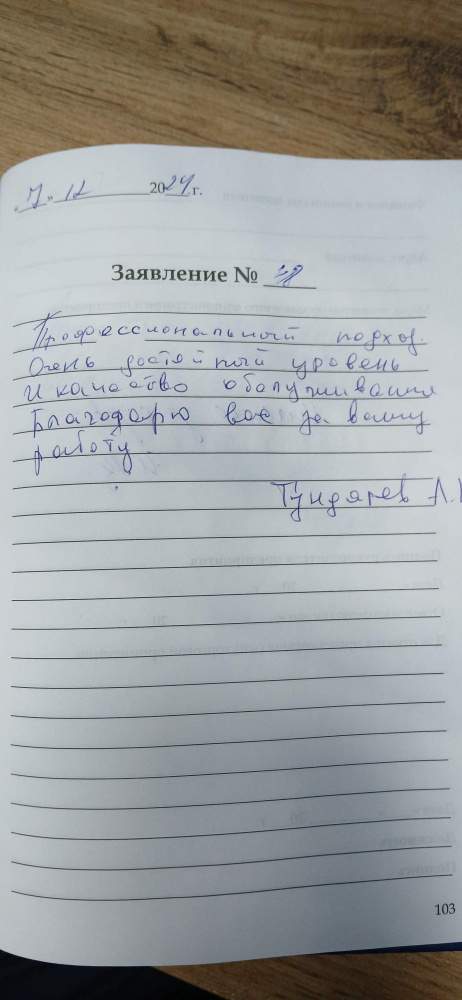 „ 7 " 12 2024 г.
Заявление № 38
Профессиональный подход.
Очень достойный уровень
и качество обслуживания
Благодарю вас за вашу
работу.
Тундягев А.
103